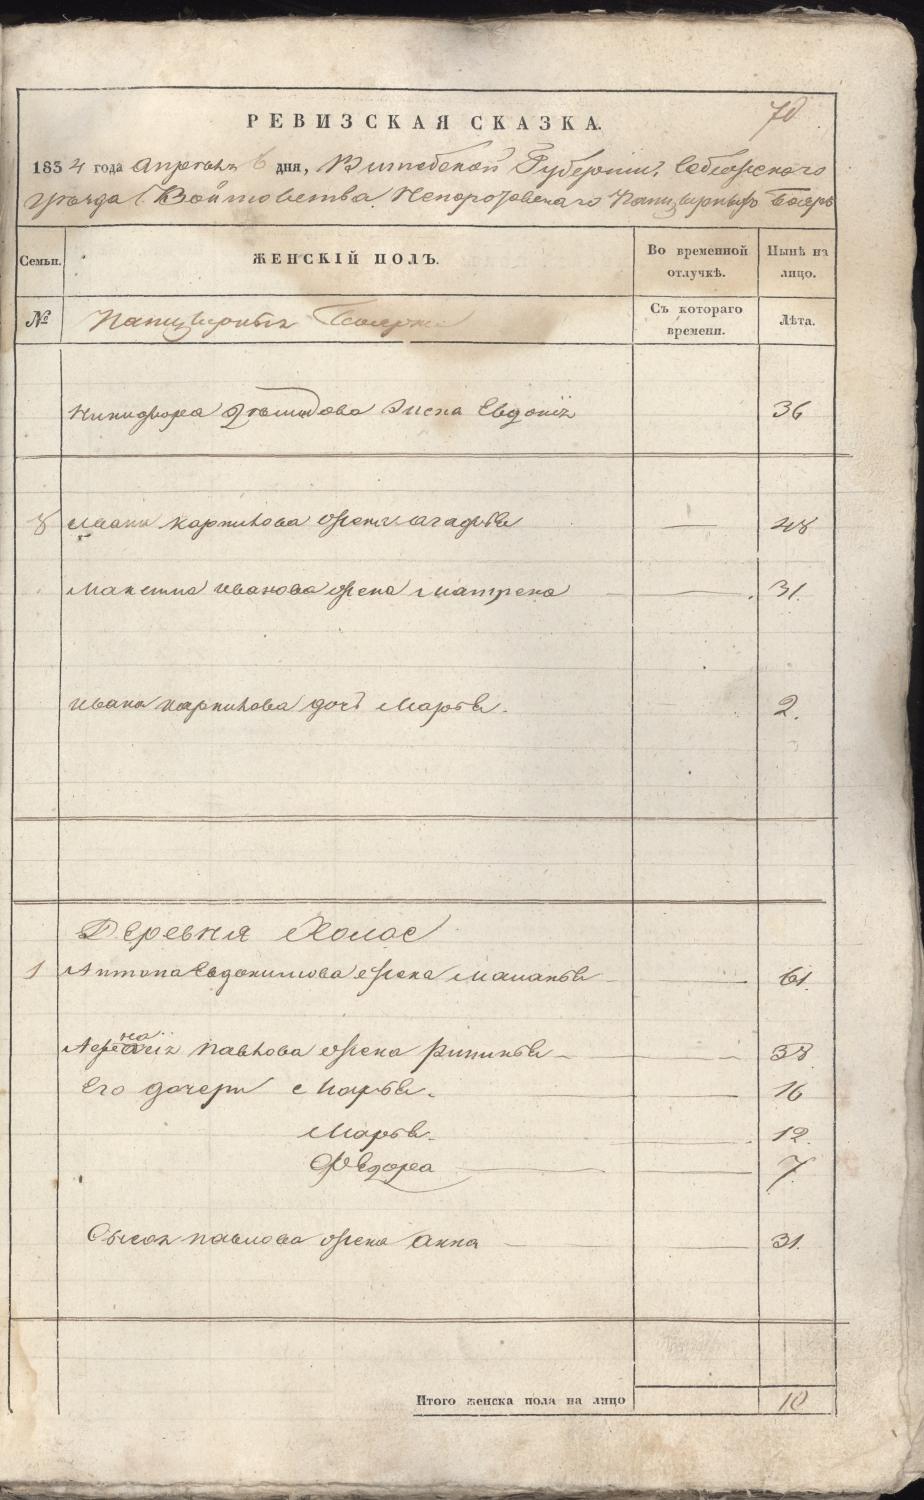 70
РЕВИЗСКАЯ СКАЗКА.
1834 года апреля 6 дня, Витебской Губернии, Себежского
уезда Войтовства Непоротовского Панцырныхъ Бояръ
Семьи. ЖЕНСКІЙ ПОЛЪ. Во временной отлучкѣ. Нынѣ на лицо.
№ Панцырныхъ Бояръ Съ котораго времени. Лѣта.
Никифора жена Евдокія 36
8 Ивана Карпилова жена Агафья — 48
Максима Иванова жена Матрена — 31.
Ивана Карпилова дочь Марья. 2.
Деревня Холос
1 Антона Евдокимова жена Маланья — 61.
на
Павлова жена — 38
Его дочери Марья. — 16
Марья. — 12.
Федора — 7.
Сысоя Павлова жена Анна — 31.
Итого женска пола на лицо 10